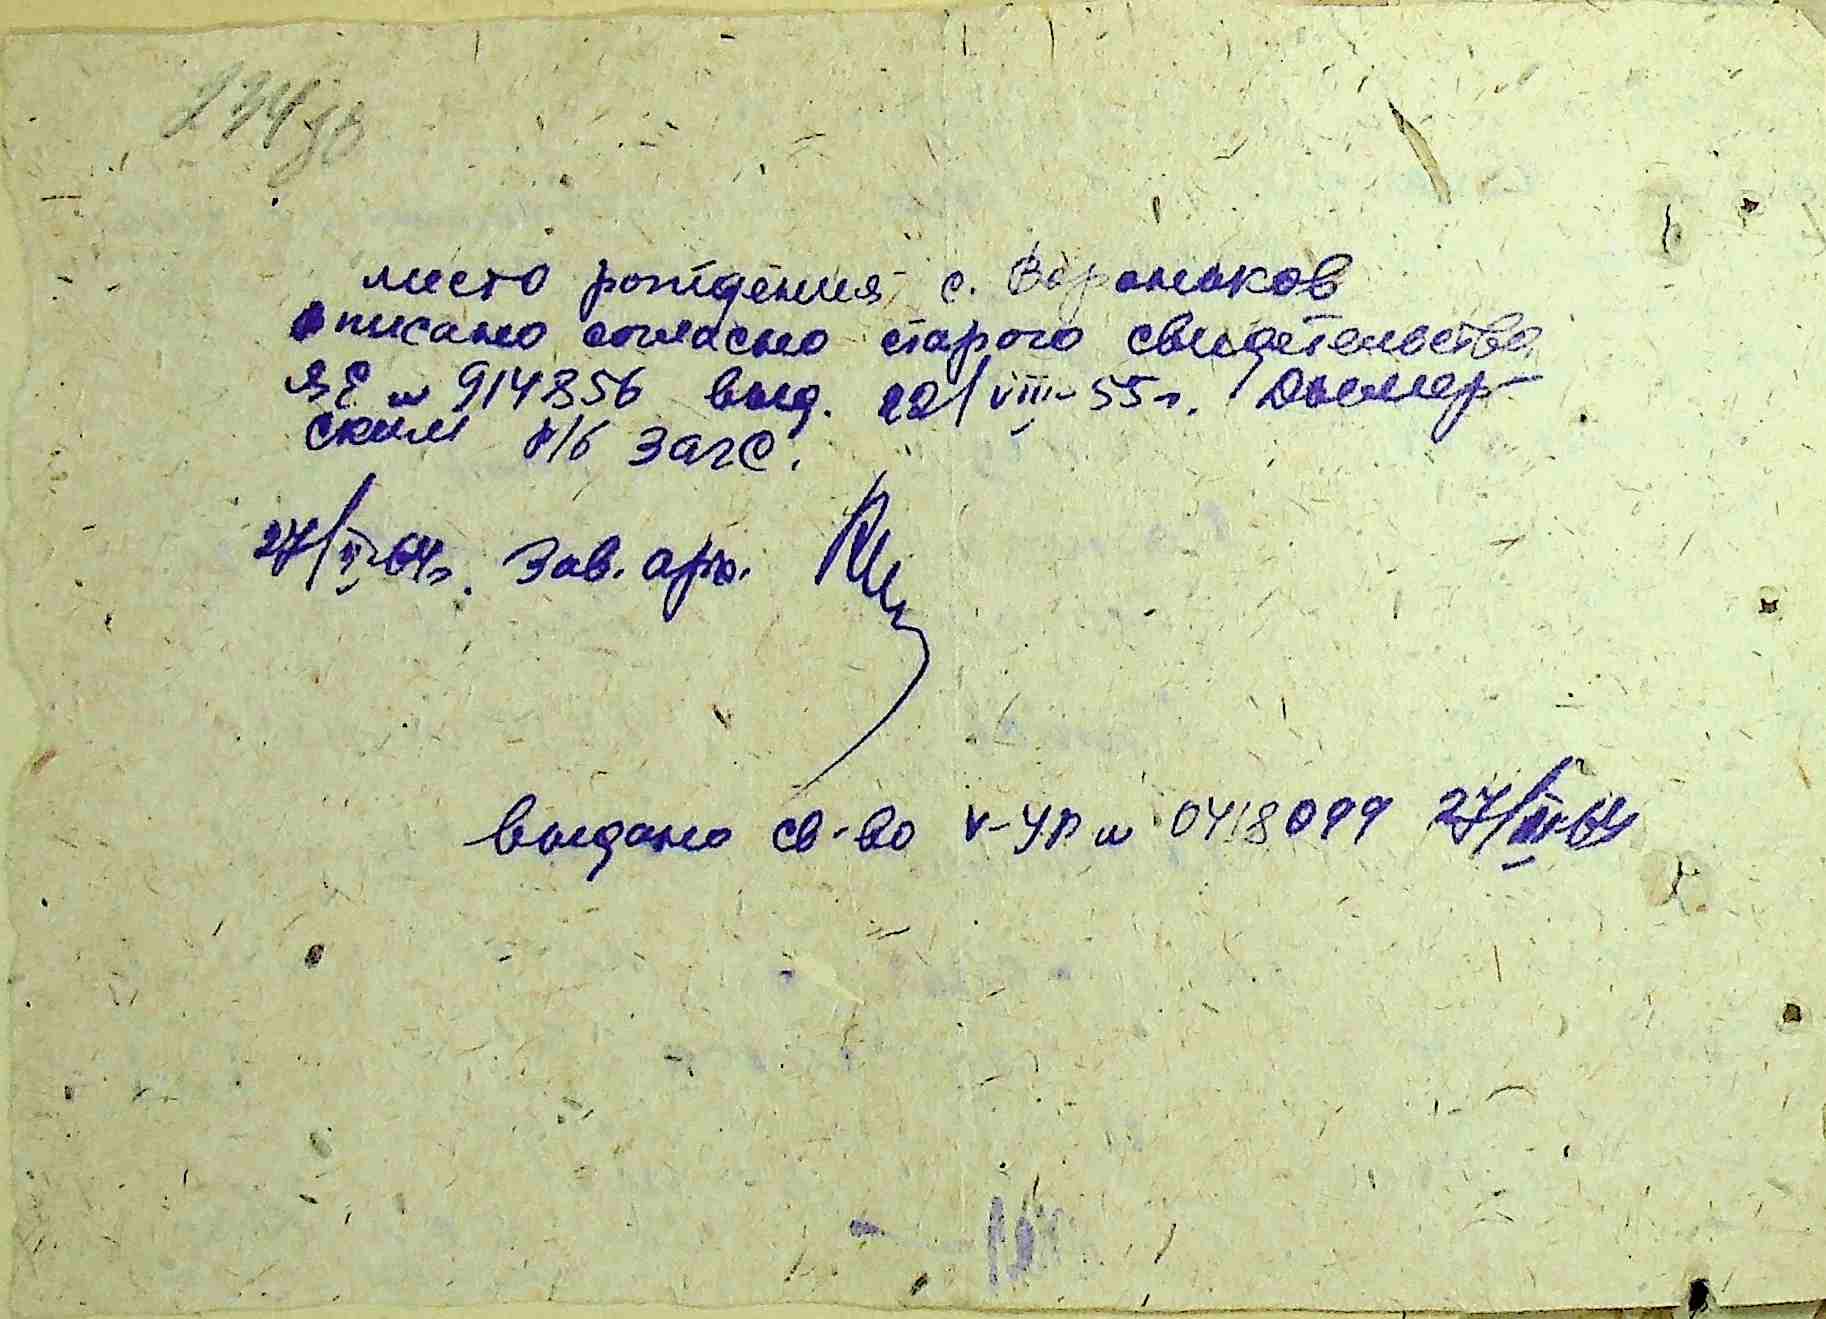 место рождения с. Вороньков
описано согласно старого свидетельства
ЯЕ № 914856 выд. 22/VIII-55г. Дымер-
ским р/б загс.
27/II-64г. Зав. арх.
выдано св-во V-УР № 0418099 27/II-64